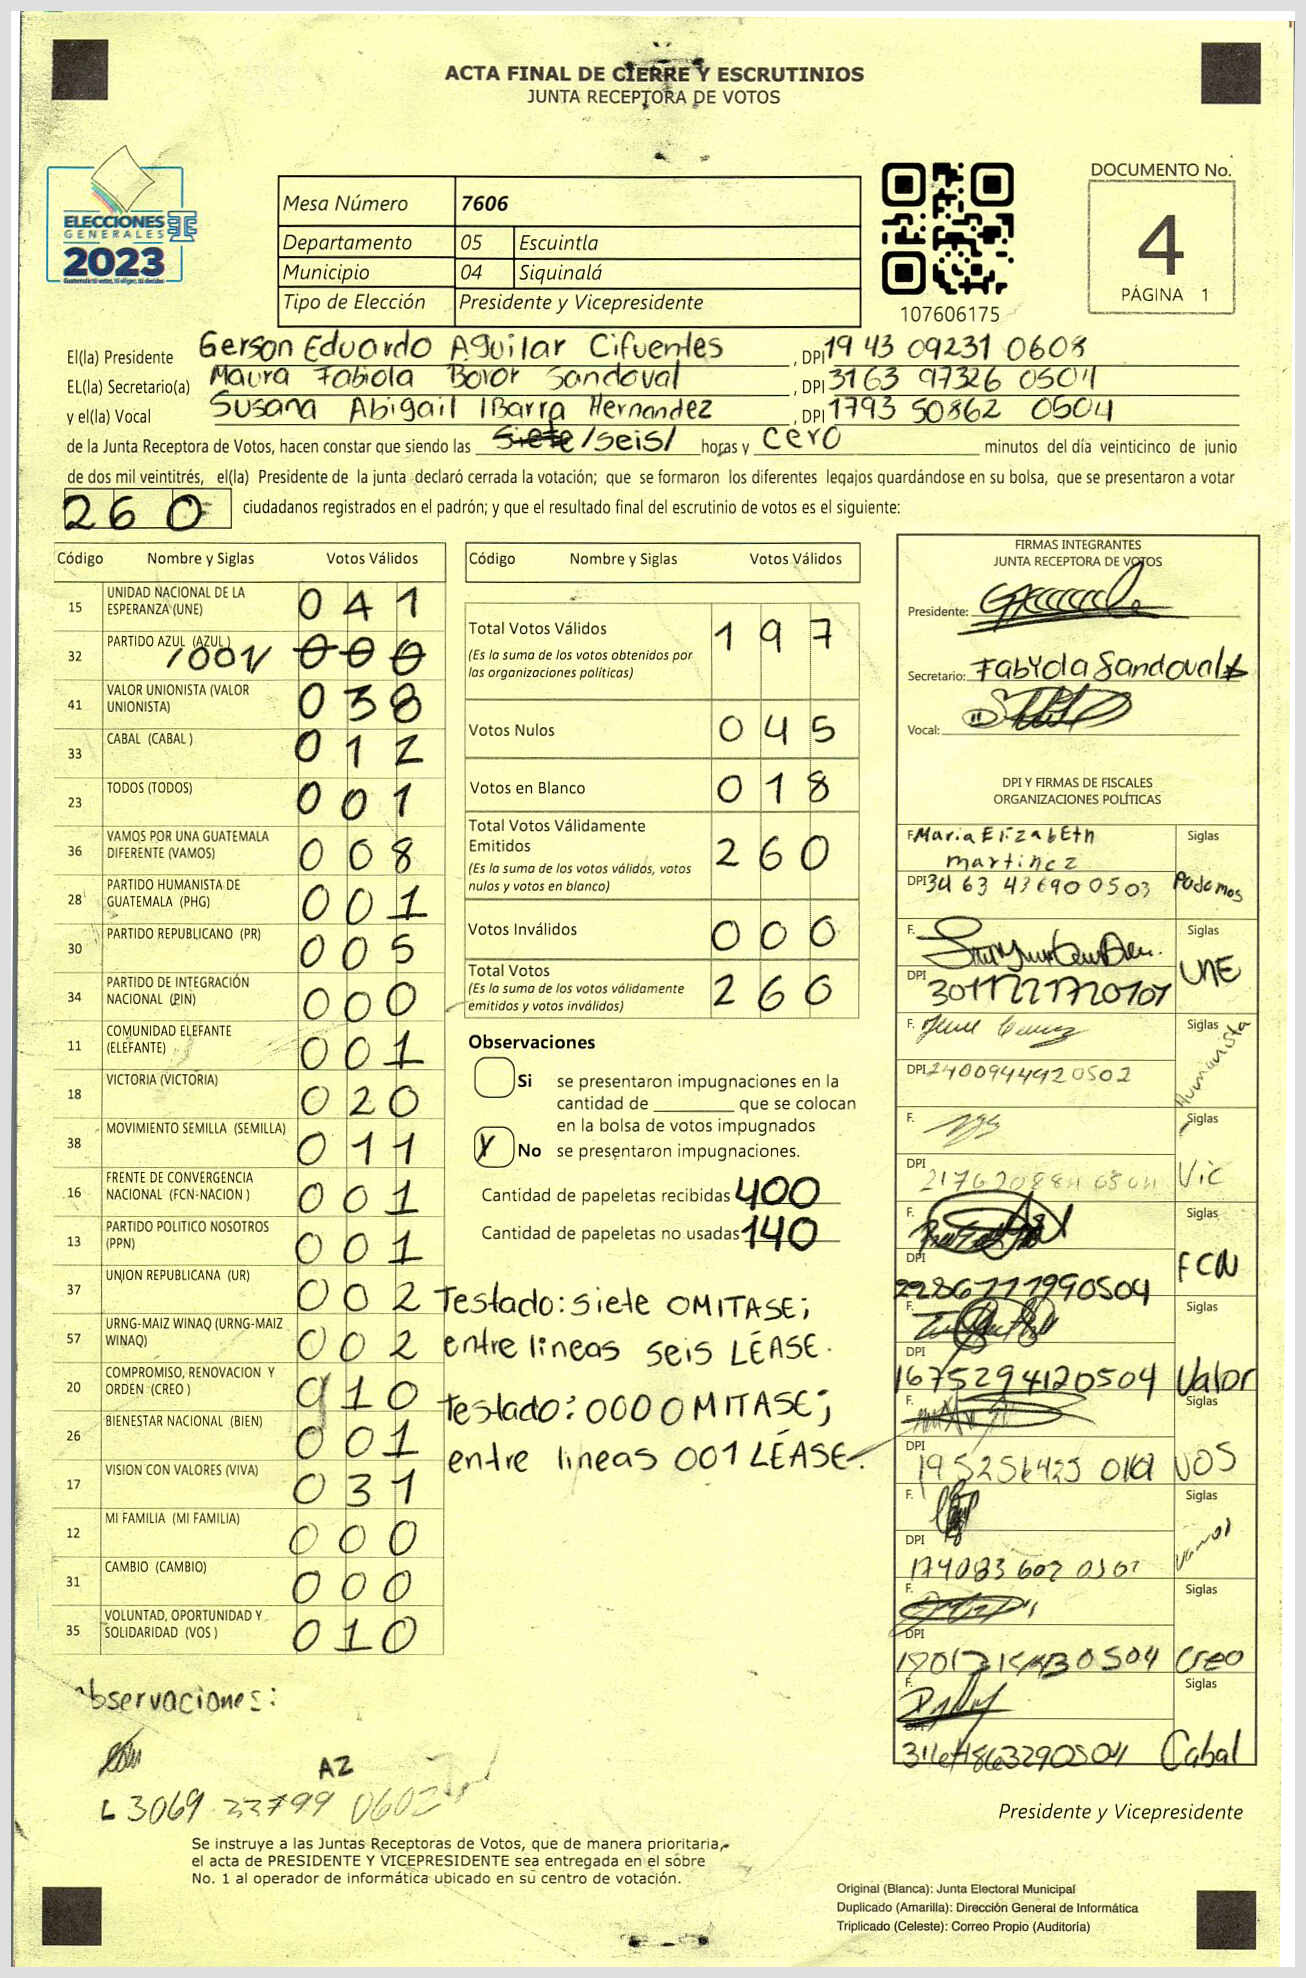 ACTA FINAL DE CIERRE Y ESCRUTINIOS
JUNTA RECEPTORA DE VOTOS
ELECCIONES
GENERALES
2023
Mesa Número 7606
Departamento 05 Escuintla
Municipio 04 Siquinalá
Tipo de Elección Presidente y Vicepresidente
107606175
DOCUMENTO No.
4
PÁGINA 1
El(la) Presidente Gerson Eduardo Aguilar Cifuentes, DPI 1943 09231 0608
EL(la) Secretario(a) Maura Fabiola Boror Sandoval, DPI 3163 97326 0504
y el(la) Vocal Susana Abigail IBarra Hernandez, DPI 1793 50862 0504
de la Junta Receptora de Votos, hacen constar que siendo las siete /seis/ horas y cero minutos del día veinticinco de junio
de dos mil veintitrés, el(la) Presidente de la junta declaró cerrada la votación; que se formaron los diferentes legajos guardándose en su bolsa, que se presentaron a votar
260 ciudadanos registrados en el padrón; y que el resultado final del escrutinio de votos es el siguiente:
Código Nombre y Siglas Votos Válidos
15 UNIDAD NACIONAL DE LA ESPERANZA (UNE) 041
32 PARTIDO AZUL (AZUL) /001/ 000
41 VALOR UNIONISTA (VALOR UNIONISTA) 038
33 CABAL (CABAL ) 012
23 TODOS (TODOS) 001
36 VAMOS POR UNA GUATEMALA DIFERENTE (VAMOS) 008
28 PARTIDO HUMANISTA DE GUATEMALA (PHG) 001
30 PARTIDO REPUBLICANO (PR) 005
34 PARTIDO DE INTEGRACIÓN NACIONAL (PIN) 000
11 COMUNIDAD ELEFANTE (ELEFANTE) 001
18 VICTORIA (VICTORIA) 020
38 MOVIMIENTO SEMILLA (SEMILLA) 011
16 FRENTE DE CONVERGENCIA NACIONAL (FCN-NACION ) 001
13 PARTIDO POLITICO NOSOTROS (PPN) 001
37 UNION REPUBLICANA (UR) 002
57 URNG-MAIZ WINAQ (URNG-MAIZ WINAQ) 002
20 COMPROMISO, RENOVACION Y ORDEN (CREO ) 010
26 BIENESTAR NACIONAL (BIEN) 001
17 VISION CON VALORES (VIVA) 031
12 MI FAMILIA (MI FAMILIA) 000
31 CAMBIO (CAMBIO) 000
35 VOLUNTAD, OPORTUNIDAD Y SOLIDARIDAD (VOS ) 010
Código Nombre y Siglas Votos Válidos
Total Votos Válidos 197
(Es la suma de los votos obtenidos por
las organizaciones políticas)
Votos Nulos 045
Votos en Blanco 018
Total Votos Válidamente
Emitidos 260
(Es la suma de los votos válidos, votos
nulos y votos en blanco)
Votos Inválidos 000
Total Votos 260
(Es la suma de los votos válidamente
emitidos y votos inválidos)
Observaciones
Si se presentaron impugnaciones en la
cantidad de ________ que se colocan
en la bolsa de votos impugnados
X No se presentaron impugnaciones.
Cantidad de papeletas recibidas 400
Cantidad de papeletas no usadas 140
Testado: siete OMITASE;
entre lineas seis LÉASE.
testado: 000 OMITASE;
entre lineas 001 LÉASE.
FIRMAS INTEGRANTES
JUNTA RECEPTORA DE VOTOS
Presidente:
Secretario: Fabyola Sandoval
Vocal:
DPI Y FIRMAS DE FISCALES
ORGANIZACIONES POLÍTICAS
F. Maria Elizabeth Siglas
martinez
DPI 3463 436900503 Podemos
F. Siglas
DPI 3011721720101 UNE
F. Siglas
DPI 2400944920502 Humanista
F. Siglas
DPI Vic
F. Siglas
DPI 2286777990504 FCN
F. Siglas
DPI 1675294120504 Valor
F. Siglas
DPI VOS
F. Siglas
DPI Vamos
F. Siglas
DPI Creo
F. Siglas
DPI Cabal
Observaciones:
AZ
Presidente y Vicepresidente
Se instruye a las Juntas Receptoras de Votos, que de manera prioritaria,
el acta de PRESIDENTE Y VICEPRESIDENTE sea entregada en el sobre
No. 1 al operador de informática ubicado en su centro de votación.
Original (Blanca): Junta Electoral Municipal
Duplicado (Amarilla): Dirección General de Informática
Triplicado (Celeste): Correo Propio (Auditoría)